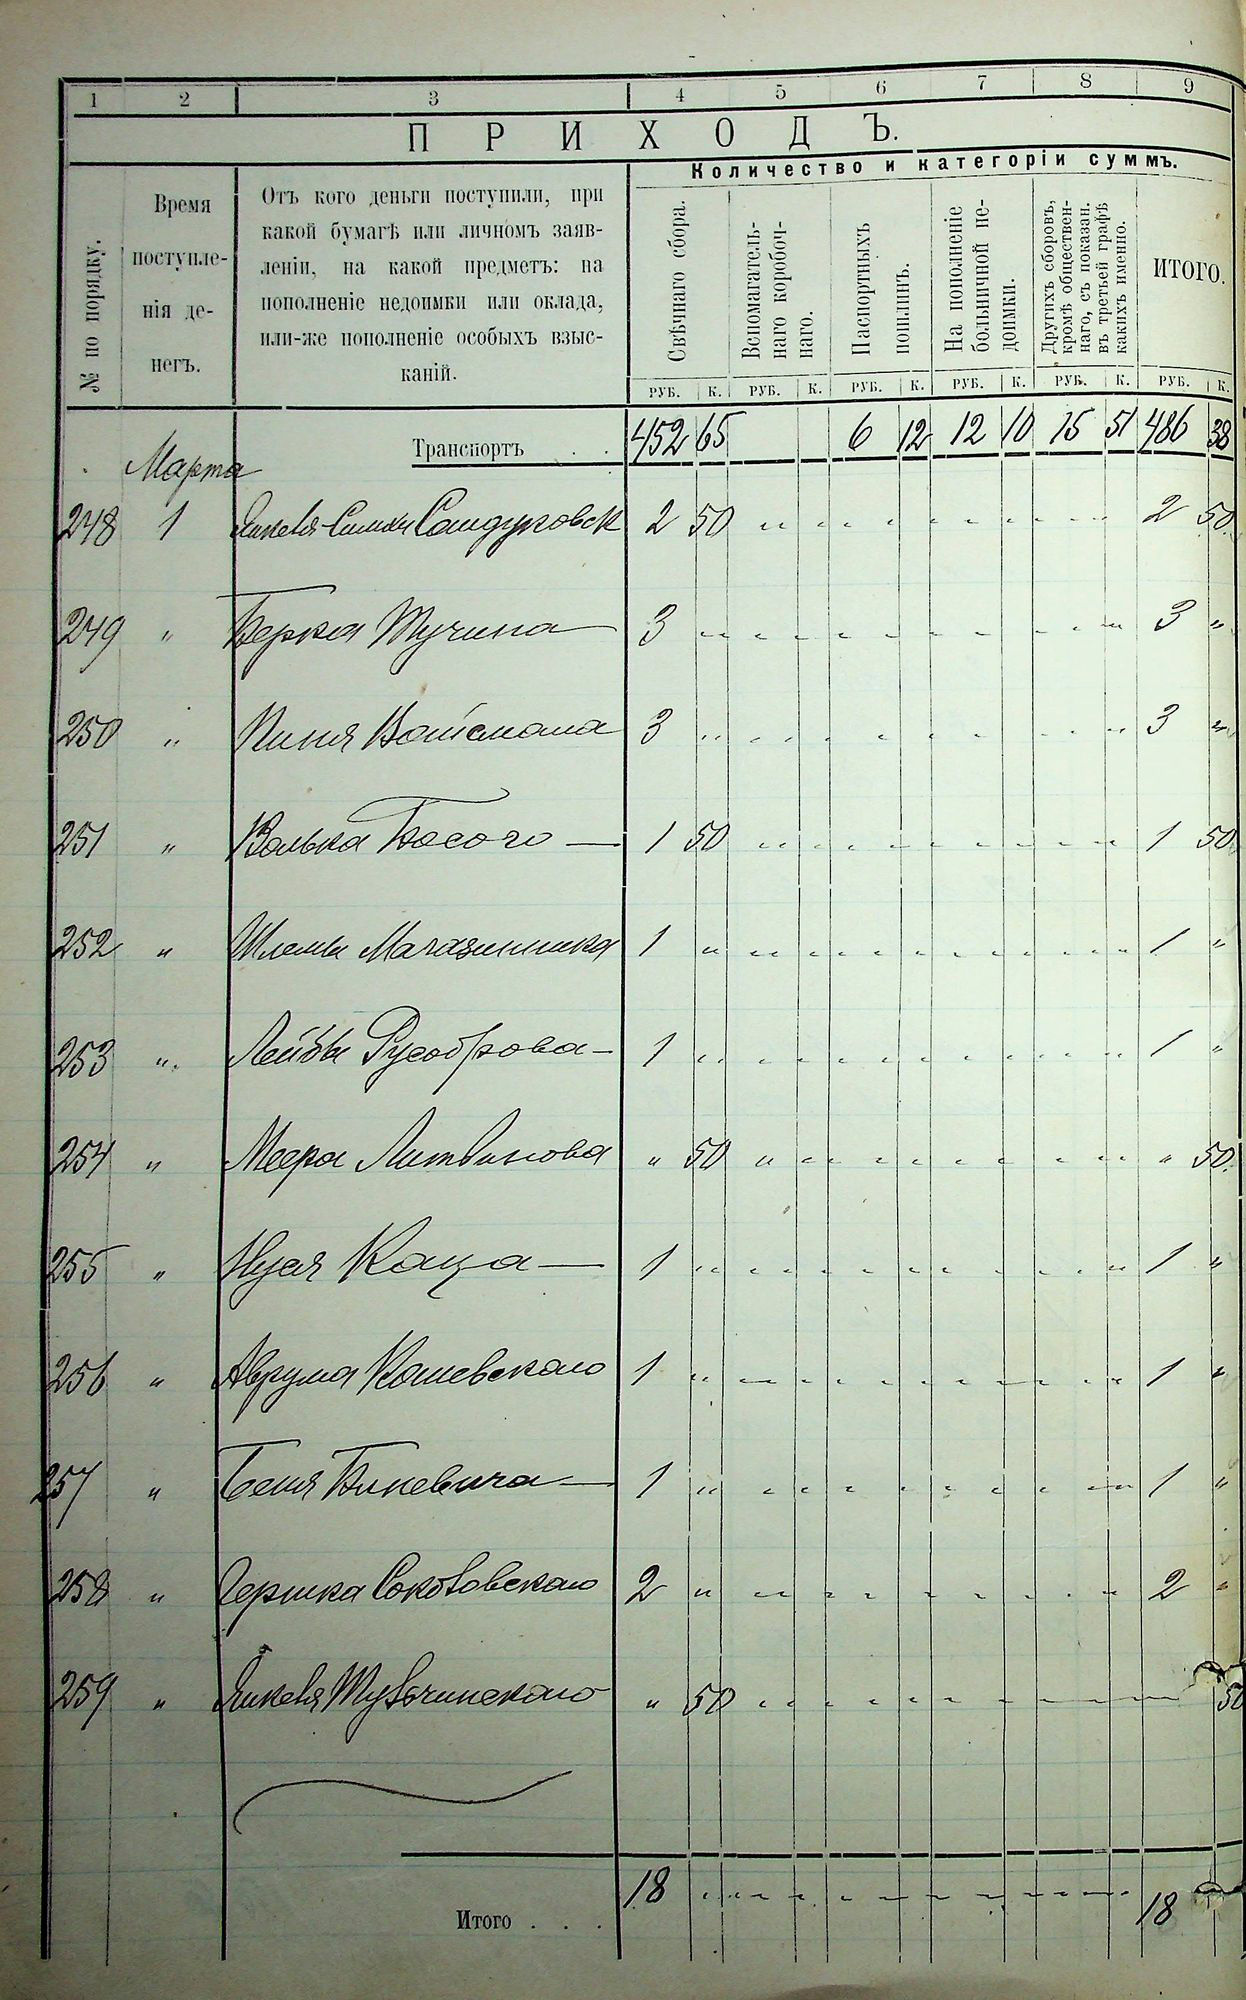 1 2 3 4 5 6 7 8 9
ПРИХОДЪ.
№ по порядку.
Время
поступле-
нія де-
негъ.
Отъ кого деньги поступили, при
какой бумагѣ или личномъ заяв-
леніи, на какой предметъ: на
пополненіе недоимки или оклада,
или-же пополненіе особыхъ взыс-
каній.
Количество и категоріи суммъ.
Свѣчнаго сбора.
Вспомагатель-
наго коробоч-
наго.
Паспортныхъ
пошлинъ.
На пополненіе
больничной не-
доимки.
Другихъ сборовъ,
кромѣ обществен-
наго, съ показан.
въ третьей графѣ
какихъ именно.
ИТОГО.
РУБ. К. РУБ. К. РУБ. К. РУБ. К. РУБ. К. РУБ. К.
Транспортъ . . 452 65 6 12 12 10 15 51 486 38
Марта
248 1 Сандуковск 2 50 " " " " " " " " 2 50
249 " Берка Тучина 3 " " " " " " " " " 3 "
250 " Пиня Вайсмана 3 " " " " " " " " " 3 "
251 " Волька Босого 1 50 " " " " " " " " 1 50
252 " Шлемы Магазинника 1 " " " " " " " " " 1 "
253 " Лейбы 1 " " " " " " " " " 1 "
254 " Меера Литвинова " 50 " " " " " " " " " 50
255 " Нуся Каца 1 " " " " " " " " " 1 "
256 " Аврума Кошевскаго 1 " " " " " " " " " 1 "
257 " 1 " " " " " " " " " 1 "
258 " Гершка 2 " " " " " " " " " 2 "
259 " " 50 " " " " " " " " 50
Итого . . . 18 " " " " " " " " " 18